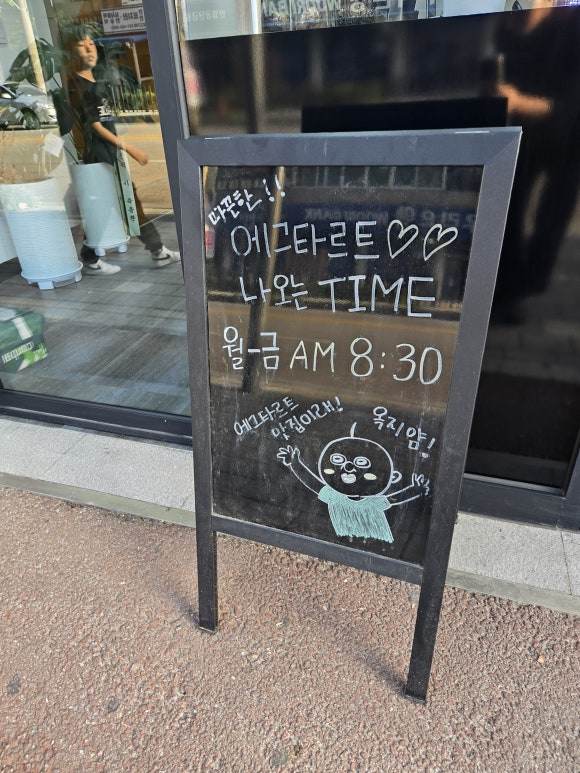 따끈한!!
에그타르트♡♡
나오는 TIME
월-금 AM 8:30
에그타르트
맛집이래!
옥지얌!